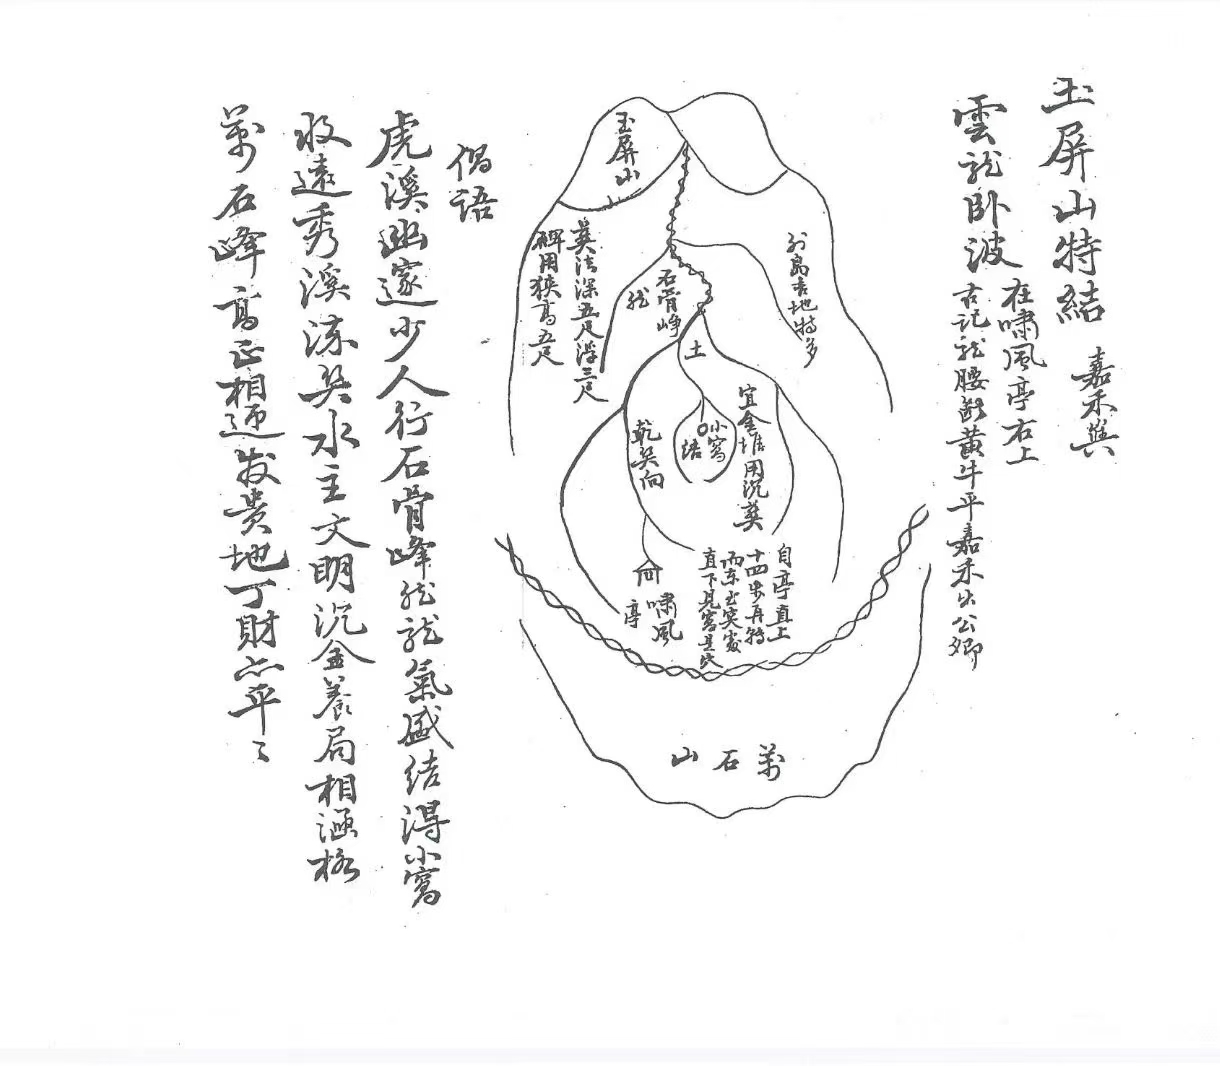 玉屏山特結 嘉禾興
雲龍卧波
在嘯風亭右上
古記龍腰斷黃牛平嘉禾出公卿
玉屏山
列島吉地特多
石骨崢
龍
葬法深五尺浮三尺
碑用狹高五尺
土
宜金塘用沉葬
小窩
結
乾巽向
自亭直上
十四步再轉
而東至突處
直下見窩是穴
嘯風
亭
萬石山
偈語
虎溪幽邃少人行石骨峰巒龍氣盛結得小窩
收遠秀溪流巽水主文明沉金葬局相涵格
萬石峰高正相迎发贵地丁財亦平々